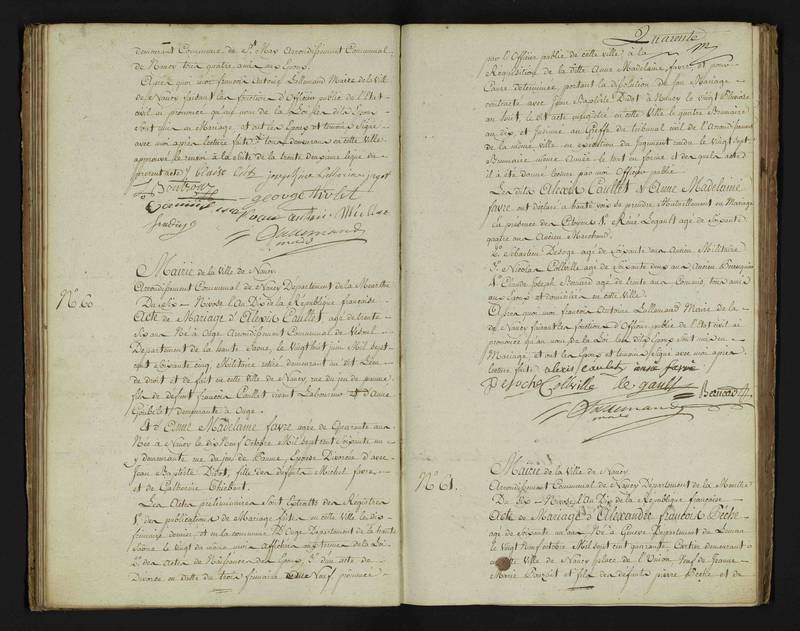 demeurant Commune de St Max Arrondissement Communal
de Nancy tous quatre amis aux Epoux.
Après quoi moi françois Antoine Lallemand Maire de la Ville
de Nancy faisant les fonctions d'Officier public de l'Etat
civil ai prononcé qu'au nom de la Loi les dits Epoux
sont unis en Mariage, et ont les Epoux et témoins Signé
avec moi après lecture faite
george
Lallemand
maire
N° 60
Mairie de la Ville de Nancy.
Arrondissement Communal de Nancy Département de la Meurthe
Du dix Nivose l'An Dix de la République française
Acte de Mariage d'Alexis Caullet agé de trente
Six ans Né à Ouge Arrondissement Communal de Vesoul
Département de la haute Saone, le vingt huit juin Mil sept
cent soixante cinq, Militaire retiré demeurant au dit Lieu
de droit et de fait en cette ville de Nancy rue du jeu de paume
fils de défunt françois Caullet vivant Laboureur et d'Anne
Goubelet demeurante à Ouge.
Et d'Anne Madelaine favre agée de Quarante ans
Née à Nancy le dix Neuf Octobre Mil sept cent soixante un
y demeurante rue du jeu de Paume, Epouse Divorcée d'avec
Jean Baptiste Didot, fille des défunts Michel favre
et de Catherine Thiébert.
Les Actes préliminaires sont Extraits des Registres
1° des publications de Mariage faites en cette Ville le dix
frimaire dernier, et en la commune d'Ouge Département de la haute
Saone, le vingt du même mois affichées aux termes de la Loi
2° des Actes de Naissances des Epoux, 3° d'un acte de
Divorce en datte du trois frimaire Neuf prononcé
Quarante
par l'Officier public de cette ville à la
Réquisition de la ditte Anne Madelaine favre et pour
Cause déterminée, portant la dissolution de son Mariage
contracté avec Jean Baptiste Didot à Nancy le vingt Pluviose
an huit, le dit acte en cette Ville le quatre Brumaire
an dix et au Greffe du Tribunal civil de l'Arrondissement
de la même ville en exécution du jugement rendu le Vingt Sept
Brumaire même Année le tout en forme et des quels actes
il a été donné lecture par moi Officier public
Les dits Alexis Caullet & Anne Madelaine
favre ont déclaré à haute voix se prendre Mutuellement en Mariage
en présence des Citoyens 1° René Legault agé de soixante
quatre ans Ancien Marchand.
2° Sebastien Desoge agé de soixante ans Ancien Militaire
3° Nicolas Collville agé de soixante deux ans Ancien
4° Claude Joseph Bernard agé de trente ans Commis, tous amis
aux Epoux et domiciliés en cette Ville.
Après quoi moi françois Antoine Lallemand Maire de la
de Nancy faisant les fonctions d'Officier public de l'Etat civil ai
prononcé qu'au nom de la Loi les dits Epoux sont unis en
Mariage, et ont les Epoux et témoins Signé avec moi après
lecture faite alexis caulet anne favre
Collville le gault Bernard
Lallemand
maire
N° 61.
Mairie de la Ville de Nancy
Arrondissement Communal de Nancy Département de la Meurthe
Du Dix Nivose l'An Dix de la République française
Acte de Mariage d'Alexandre françois Pêche
agé de soixante un ans Né à Geneve Département du Leman
le Vingt Neuf octobre Mil sept cent quarante, demeurant à
Ville de Nancy place de l'Union Veuf de Jeanne
Marie et fils des défunts pierre Pêche et de